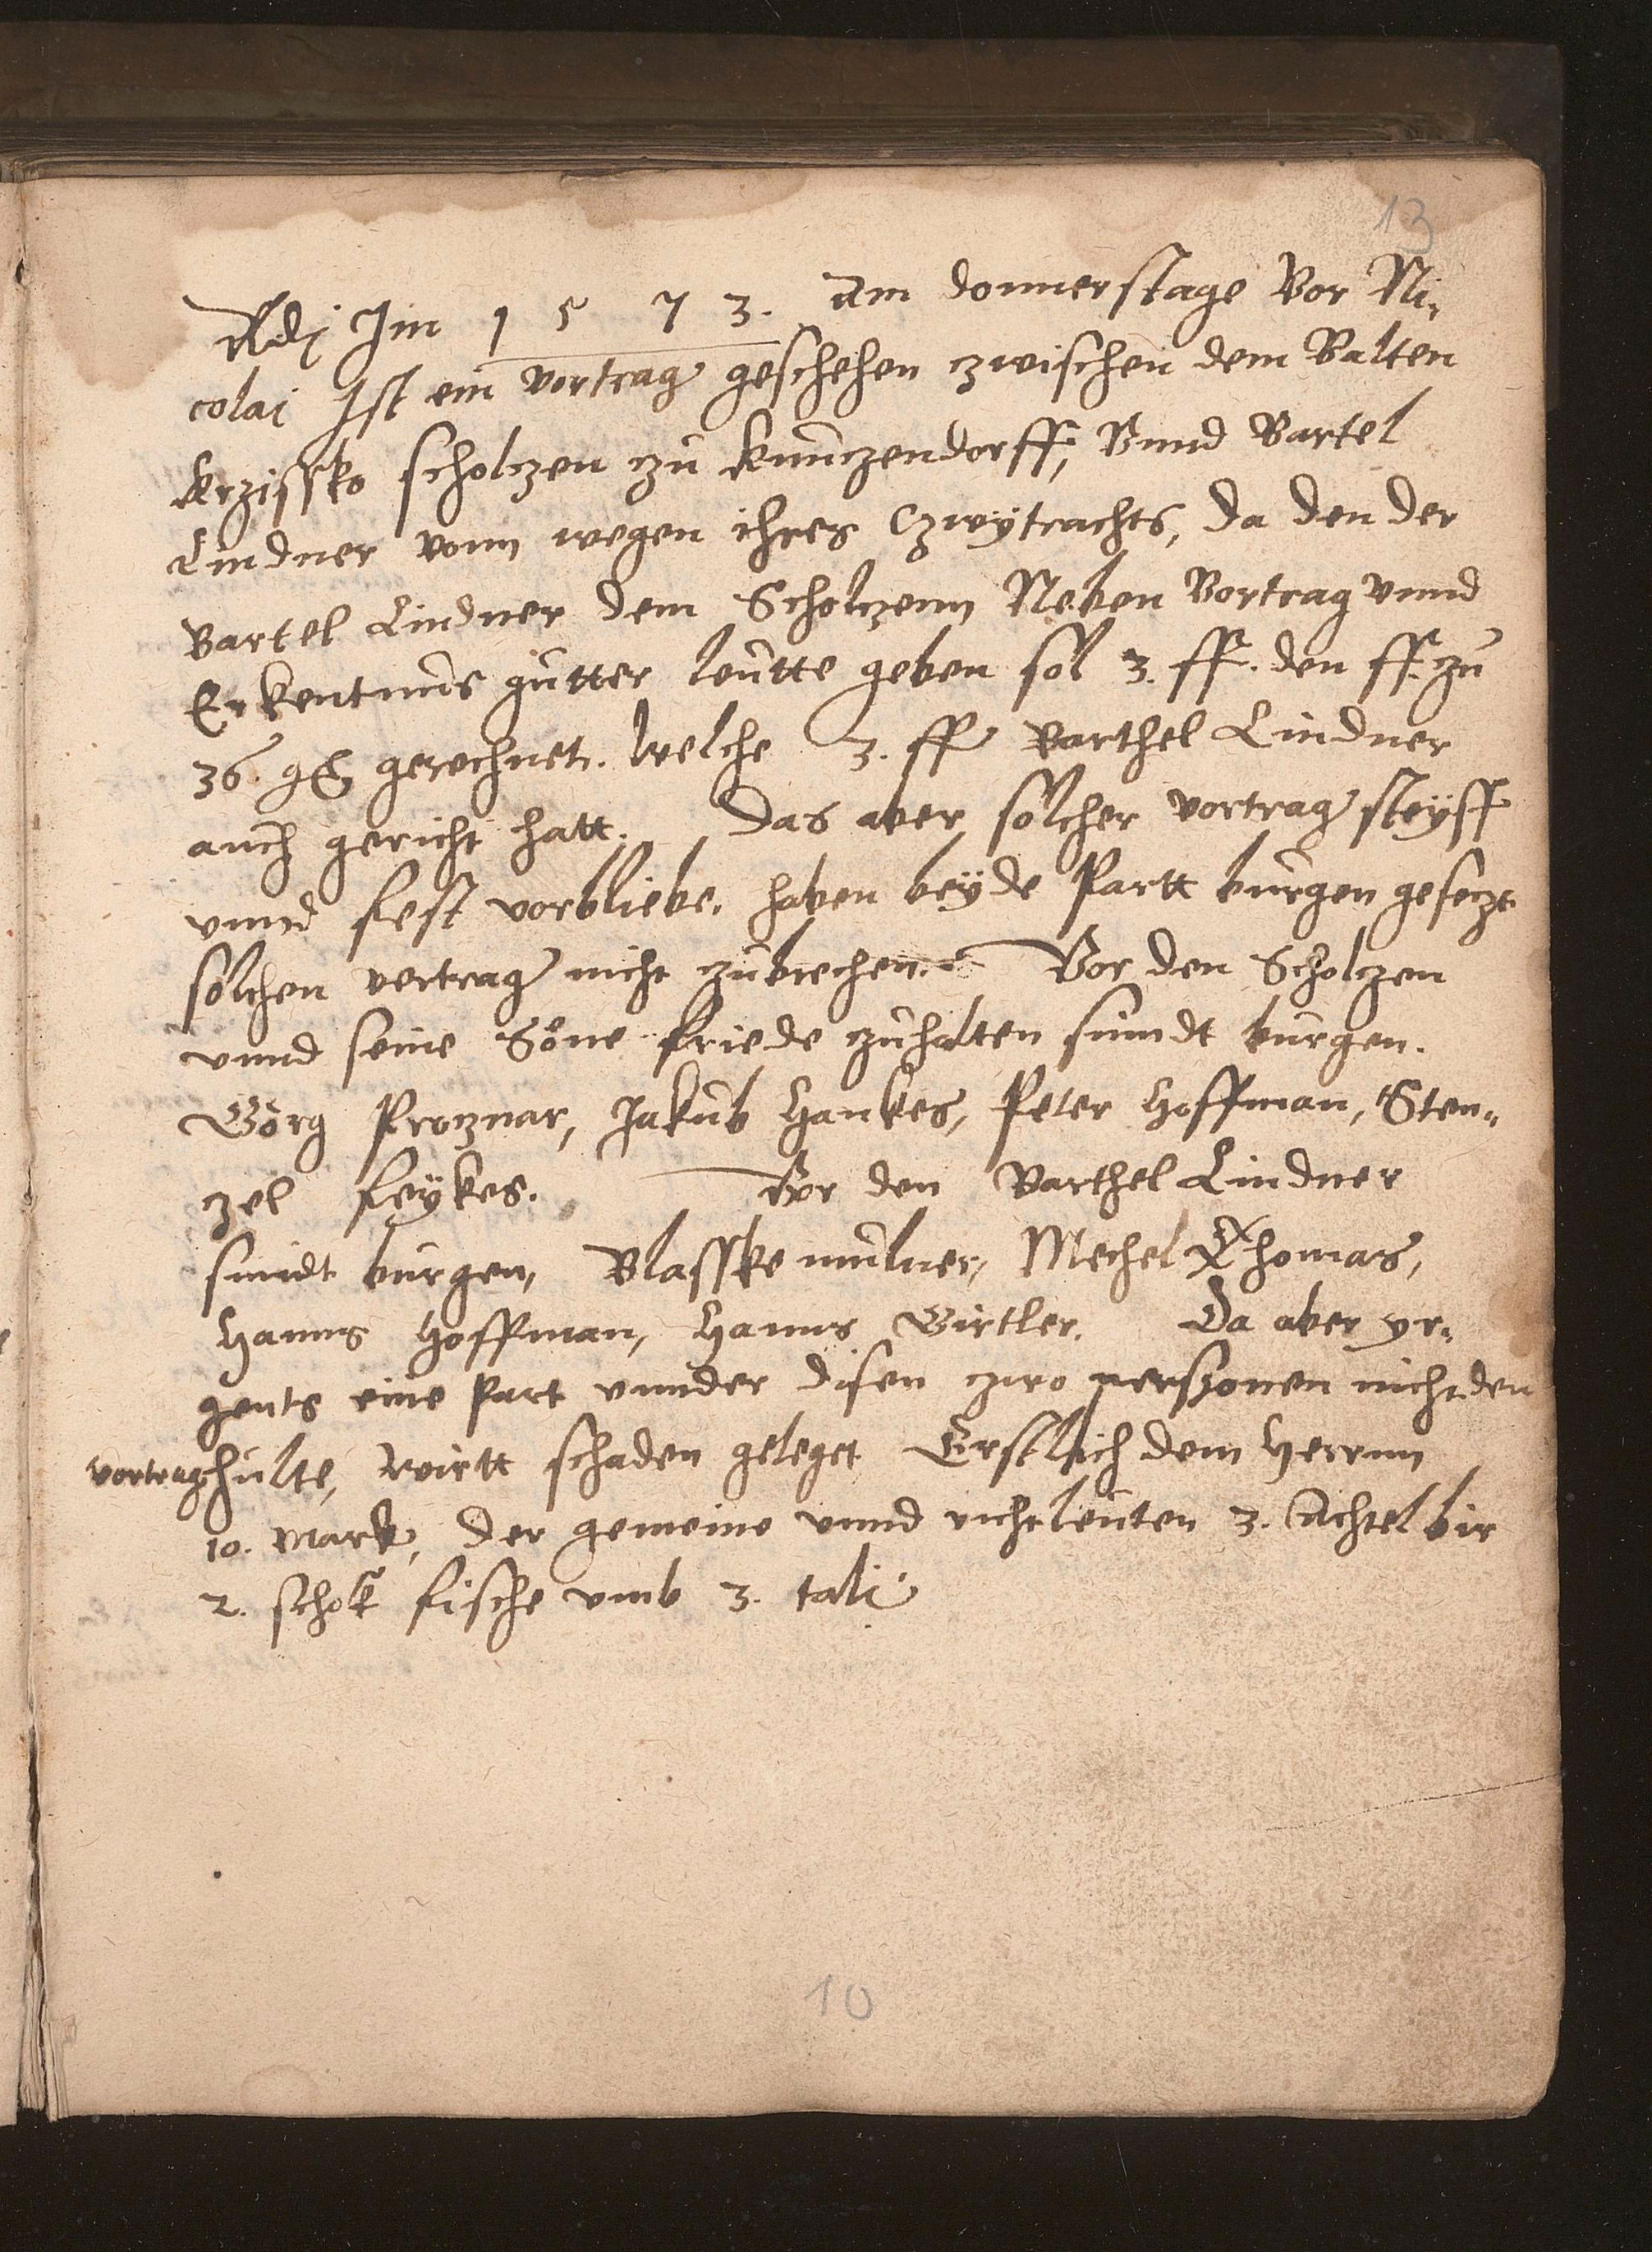 13
Adj Im 1573. Am donnerstage Vor Ni-
colai Ist ein vortrag geschehen czwischen dem Valten
Krzissko scholczen czu Kunczendorff, Vnnd Bartel
Lindner vonn wegen ihres Czwytrachts, da den der
Bartel Lindner dem Scholczenn Neben Vortrag vnnd
Erkentnus gutter leutte geben sol 3. ff. den ff. zu
36 gg gerechnet. Welche 3. ff Barthel Lindner
auch gericht hatt. Das aber solcher vortrag steyff
vnnd fest vorbliebe, haben beyde Partt burgen geseczt
solchen vertrag nicht zubrechen. Vor den Scholczen
vnnd seine Söne friede czuhalten sundt burgen.
Görg Procznar, Jakub Hankes, Peter Hoffman, Sten-
czel Feykes. Vor den Barthel Lindner
sundt burgen, Blasske mulner, Mechel Thomas,
Hanns Hoffman, Hanns Girtler. Da aber yr-
gents eine Part vnnder disen czwo perszonen nicht den
vortrag hülte, wirtt schaden geleget Erstlich dem Herrnn
10. Mark, der gemeine vnnd richtleuten 3. Achtel bir
2. schok fische vmb 3. tali
10